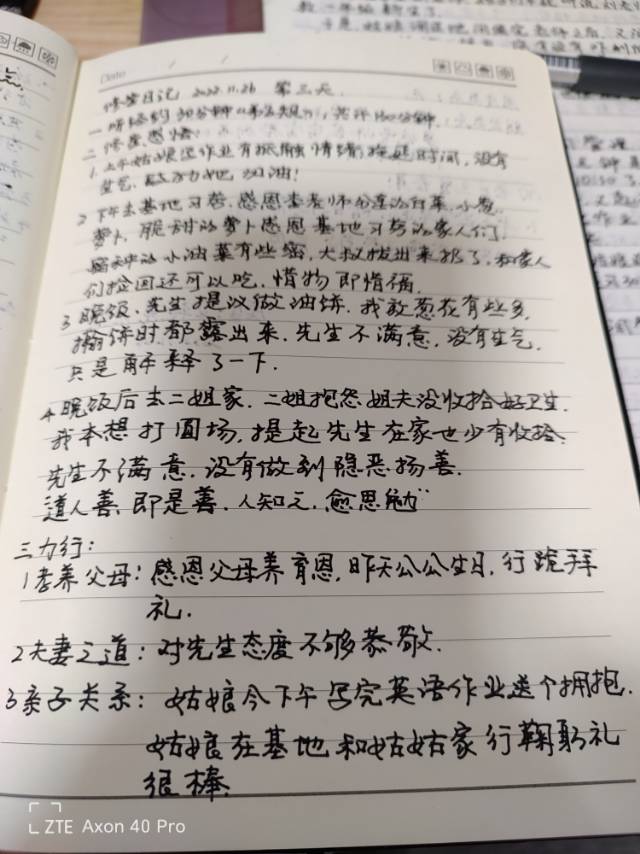 Date
修学日记 2022.11.26 第三天.
一.听经约30分钟《弟子规》; 
二.修学感悟:
1.上午姑娘因作业有抵触情绪拖延时间,没有
生气,给她加油!
2.下午去基地习劳,感恩李老师分享的白菜、小葱、
萝卜,脆甜的萝卜感恩基地习劳的家人们.
的小油菜有些密,大叔拔出来扔了,和家人
们捡回还可以吃,惜物即惜福.
3 晚饭,先生提议做油饼.我放葱花有些多,
擀饼时都露出来.先生不满意,没有生气,
只是解释了一下.
4 晚饭后去二姐家.二姐抱怨姐夫没收拾好卫生.
我本想打圆场,提起先生在家也少有收拾.
先生不满意.没有做到隐恶扬善.
道人善,即是善.人知之,愈思勉"
三力行:
1孝养父母:感恩父母养育恩,昨天公公生日,行跪拜
礼.
2夫妻之道:对先生态度不够恭敬.
3亲子关系:姑娘今下午写完英语作业送个拥抱.
姑娘在基地和姑姑家行鞠躬礼
很棒.
ZTE Axon 40 Pro